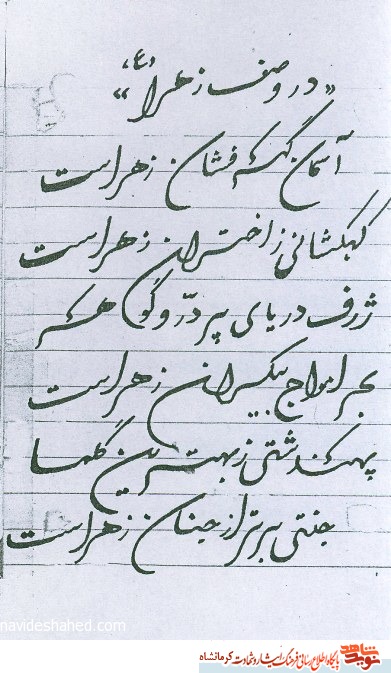 «در وصف زهرا (ع)»
آسمان گهرفشان زهراست
کهکشانی ز اختران زهراست
ژرف دریای پر درّ و گوهر
بحر امواج بیکران زهراست
پهندشتی ز بهترین گلها
جنتی برتر از جنان زهراست
navideshahed.com
نوید شاهد
پایگاه اطلاع رسانی فرهنگ ایثار و شهادت کرمانشاه